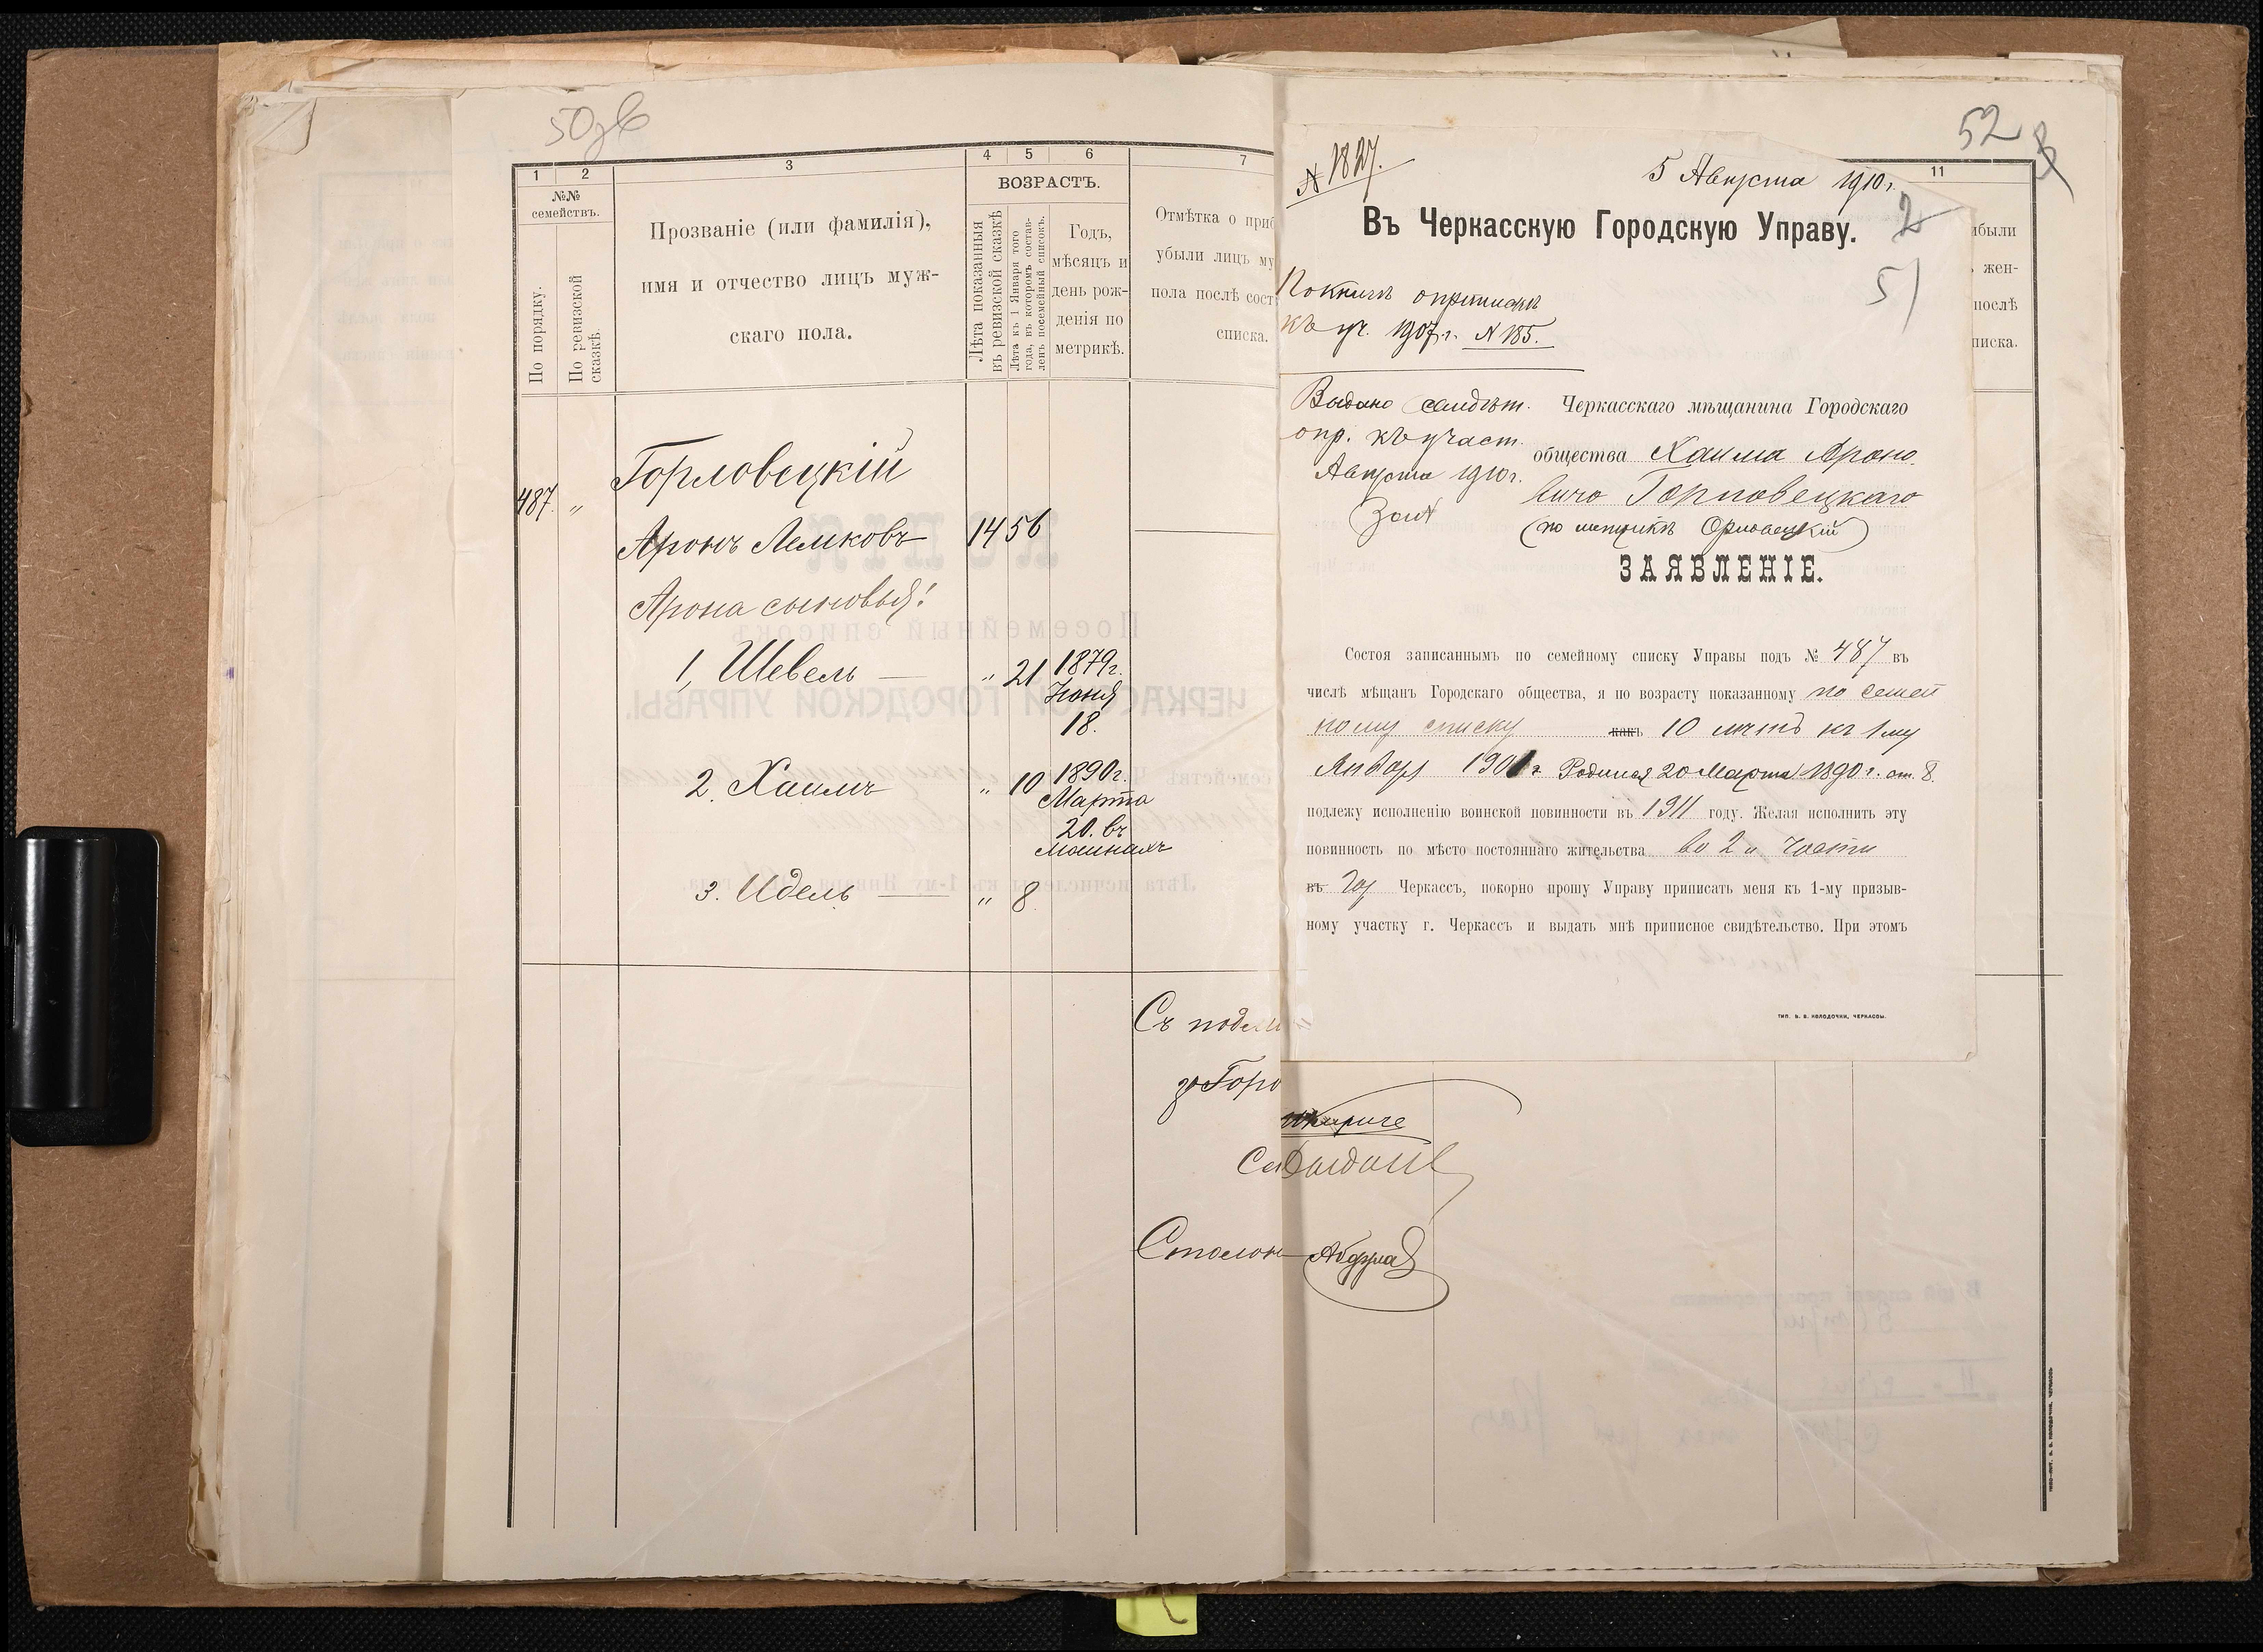 50зв
1 2 3 4 5 6 7
№№ семействъ.
По порядку.
По ревизской сказкѣ.
Прозваніе (или фамилія),
имя и отчество лицъ муж-
скаго пола.
ВОЗРАСТЪ.
Лѣта показанныя въ ревизской сказкѣ
Лѣта къ 1 Января того года, въ которомъ состав-ленъ посемейный списокъ.
Годъ,
мѣсяцъ и
день рож-
денія по
метрикѣ.
Отмѣтка о при
убыли лицъ му
пола послѣ сост
списка.
487. "
Горловецкій
Аронъ Лемковъ 14 56
Арона сыновья:
1, Шевель — " 21 1879г.
Іюня
18.
2. Хаимъ " 10 1890г.
Марта
20. въ
Мошнахъ
3. Идель — " 8
Съ подли
за Горо
Столон
52
11
ибыли
жен-
послѣ
писка.
№ 1827.
5 Августа 1910г.
2
51
Въ Черкасскую Городскую Управу.
къ уч. 1907г. № 185.
Выдано свидѣт.
опр. къ участ.
Августа 1910г.
Черкасскаго мѣщанина Городскаго
общества Хаима Ароно
вича Горловецкаго
(по метрикѣ Орловецкій)
ЗАЯВЛЕНІЕ.
Состоя записаннымъ по семейному списку Управы подъ № 487 въ
числѣ мѣщанъ Городскаго общества, я по возрасту показанному по семей
ному списку какъ 10 лѣтъ къ 1му
Января 1901г Родился 20 Марта 1890 г. ст. 8.
подлежу исполненію воинской повинности въ 1911 году. Желая исполнить эту
повинность по мѣсто постояннаго жительства во 2й части
въ гор Черкассъ, покорно прошу Управу приписать меня къ 1-му призыв-
ному участку г. Черкассъ и выдать мнѣ приписное свидѣтельство. При этомъ
ТИП. В. В. КОЛОДОЧКИ, ЧЕРКАССЫ.